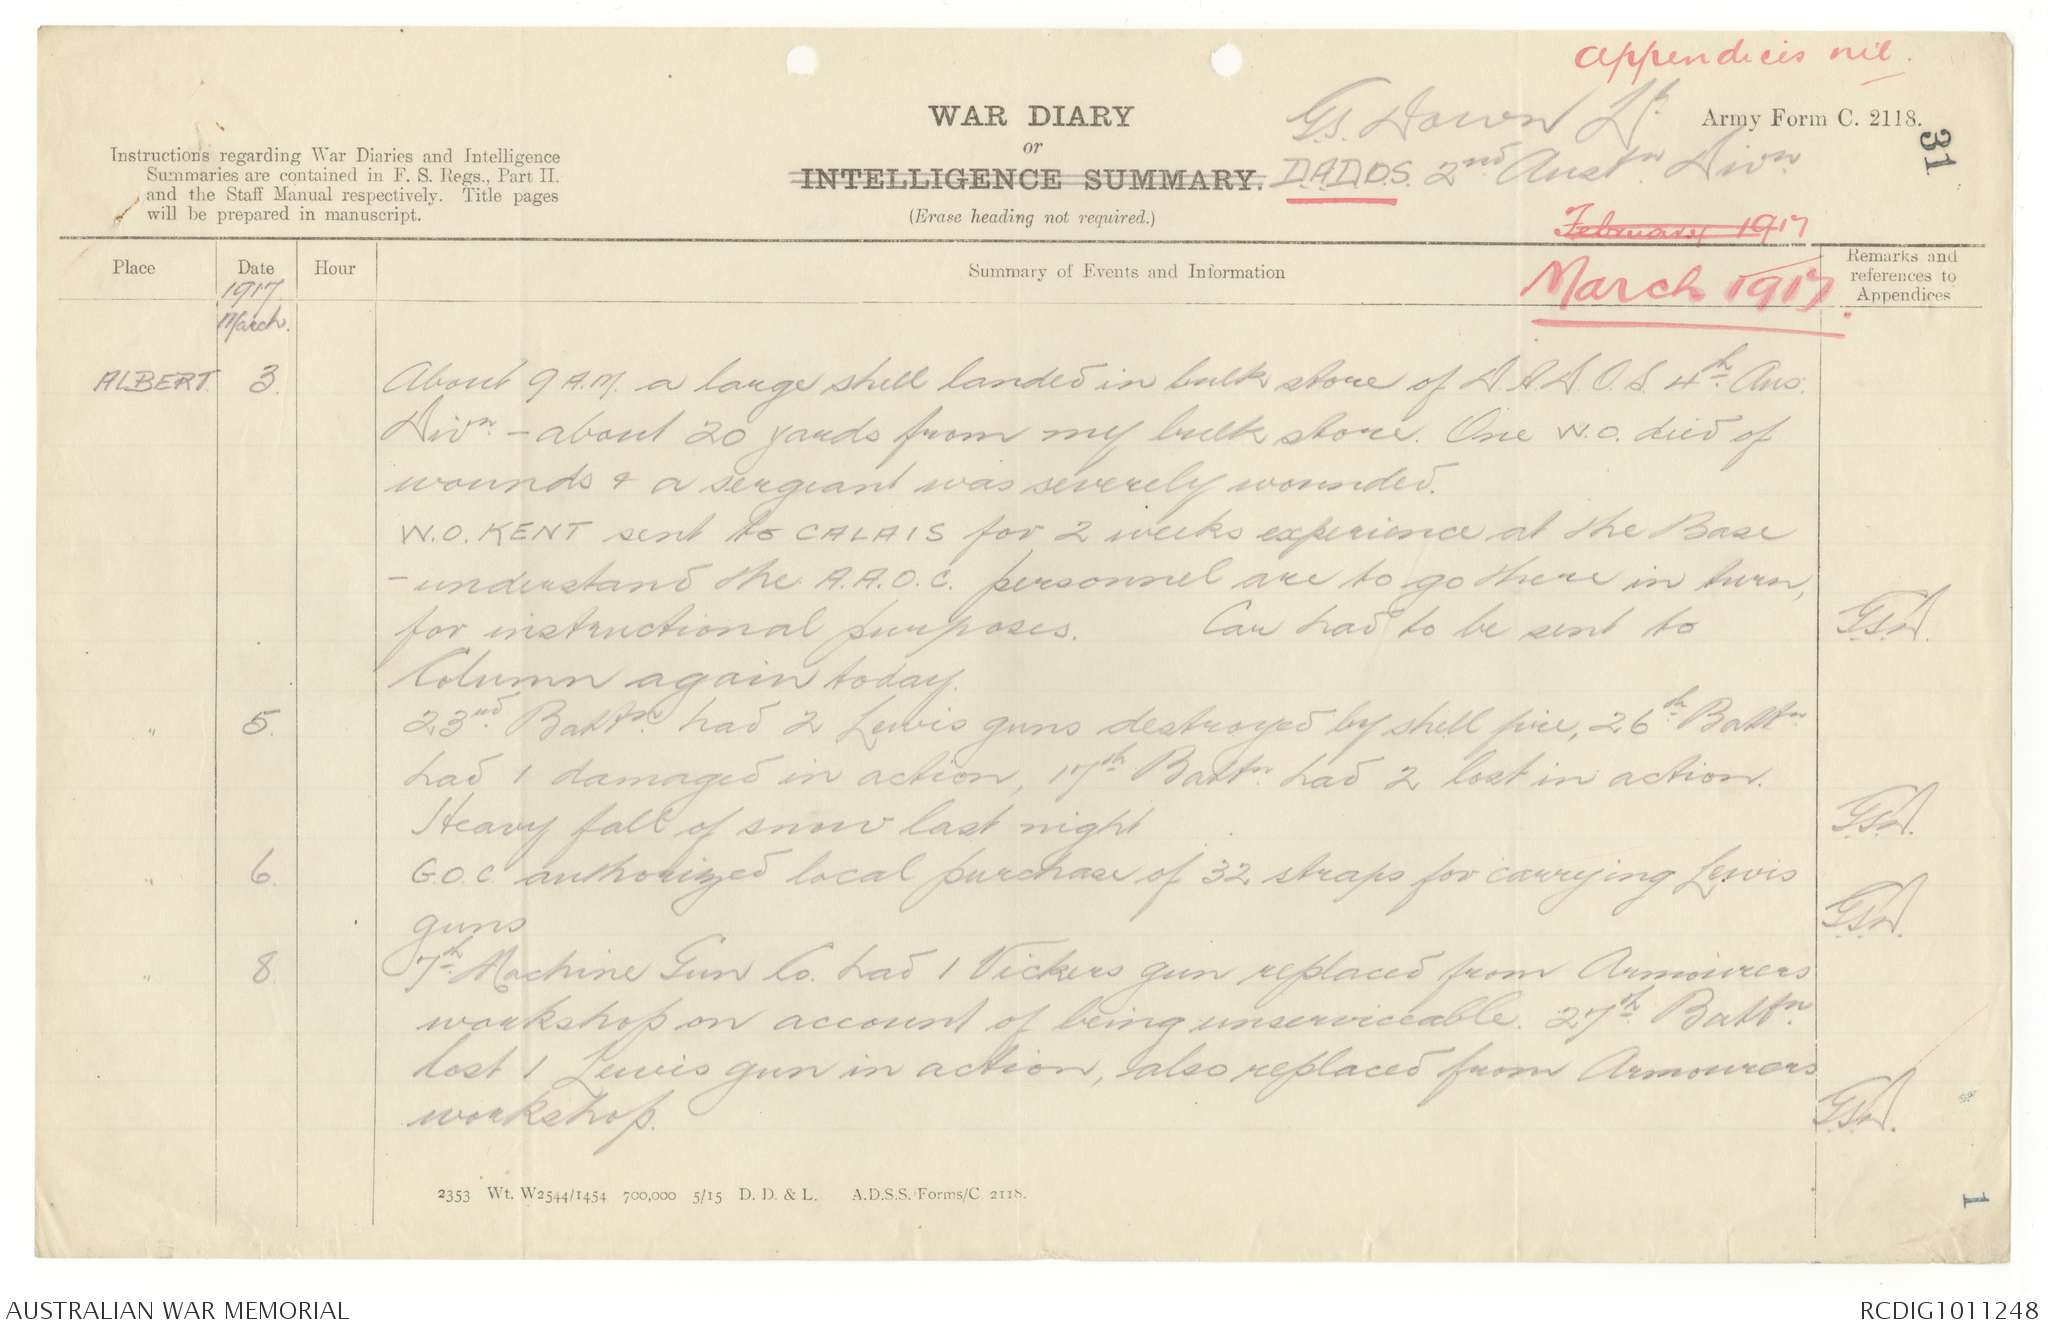 appendices nil.
WAR DIARY
or
INTELLIGENCE SUMMARY.
(Erase heading not required.)
G.S. Down Lt.
D.A.D.O.S. 2nd Austn Divn
Army Form C. 2118.
31
Instructions regarding War Diaries and Intelligence
Summaries are contained in F. S. Regs., Part II.
and the Staff Manual respectively. Title pages
will be prepared in manuscript.
February 1917
March 1917.
Place Date Hour Summary of Events and Information Remarks and references to Appendices
1917
March.
ALBERT. 3. About 9 A.M. a large shell landed in bulk store of D.A.D.O.S. 4th Aus.
Divn. – about 20 yards from my bulk store. One W.O. died of
wounds & a sergeant was severely wounded.
W.O. KENT sent to CALAIS for 2 weeks experience at the Base
– understand the A.A.O.C. personnel are to go there in turn,
for instructional purposes. Car had to be sent to G.S.D.
Column again today.
" 5. 23rd Battn. had 2 Lewis guns destroyed by shell fire, 26th Battn
had 1 damaged in action, 17th Battn. had 2 lost in action.
Heavy fall of snow last night G.S.D.
" 6. G.O.C. authorized local purchase of 32 straps for carrying Lewis
guns G.S.D.
" 8. 7th Machine Gun Co. had 1 Vickers gun replaced from Armourers
workshop on account of being unserviceable. 27th Battn.
lost 1 Lewis gun in action, also replaced from Armourers
workshop. G.S.D.
2353 Wt. W2544/1454 700,000 5/15 D. D. & L. A.D.S.S./Forms/C. 2118.
1
AUSTRALIAN WAR MEMORIAL
RCDIG1011248